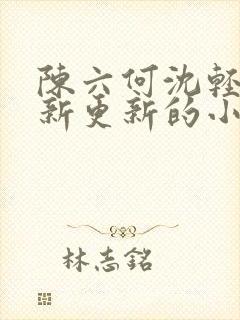 陳六何沈輕
新更新的小
林志銘